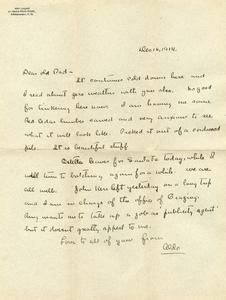 Dec 14, 1914.
Dear old Dad:-
It continues cold down here and
I read about zero weather with you also. No good
for tinkering here now. I am having me some
Red Cedar lumber sawed and very anxious to see
what it will look like. Picked it out of a cordwood
pile. It is beautiful stuff.
Estella leaves for Santa Fe today, while I
will turn to batching again for a while. We are
all well. John Kerr left yesterday on a long trip
and I am in charge of the office of Grazing.
wants me to take up a job as "publicity agent"
but it doesn't greatly appeal to me.
Love to all of you from